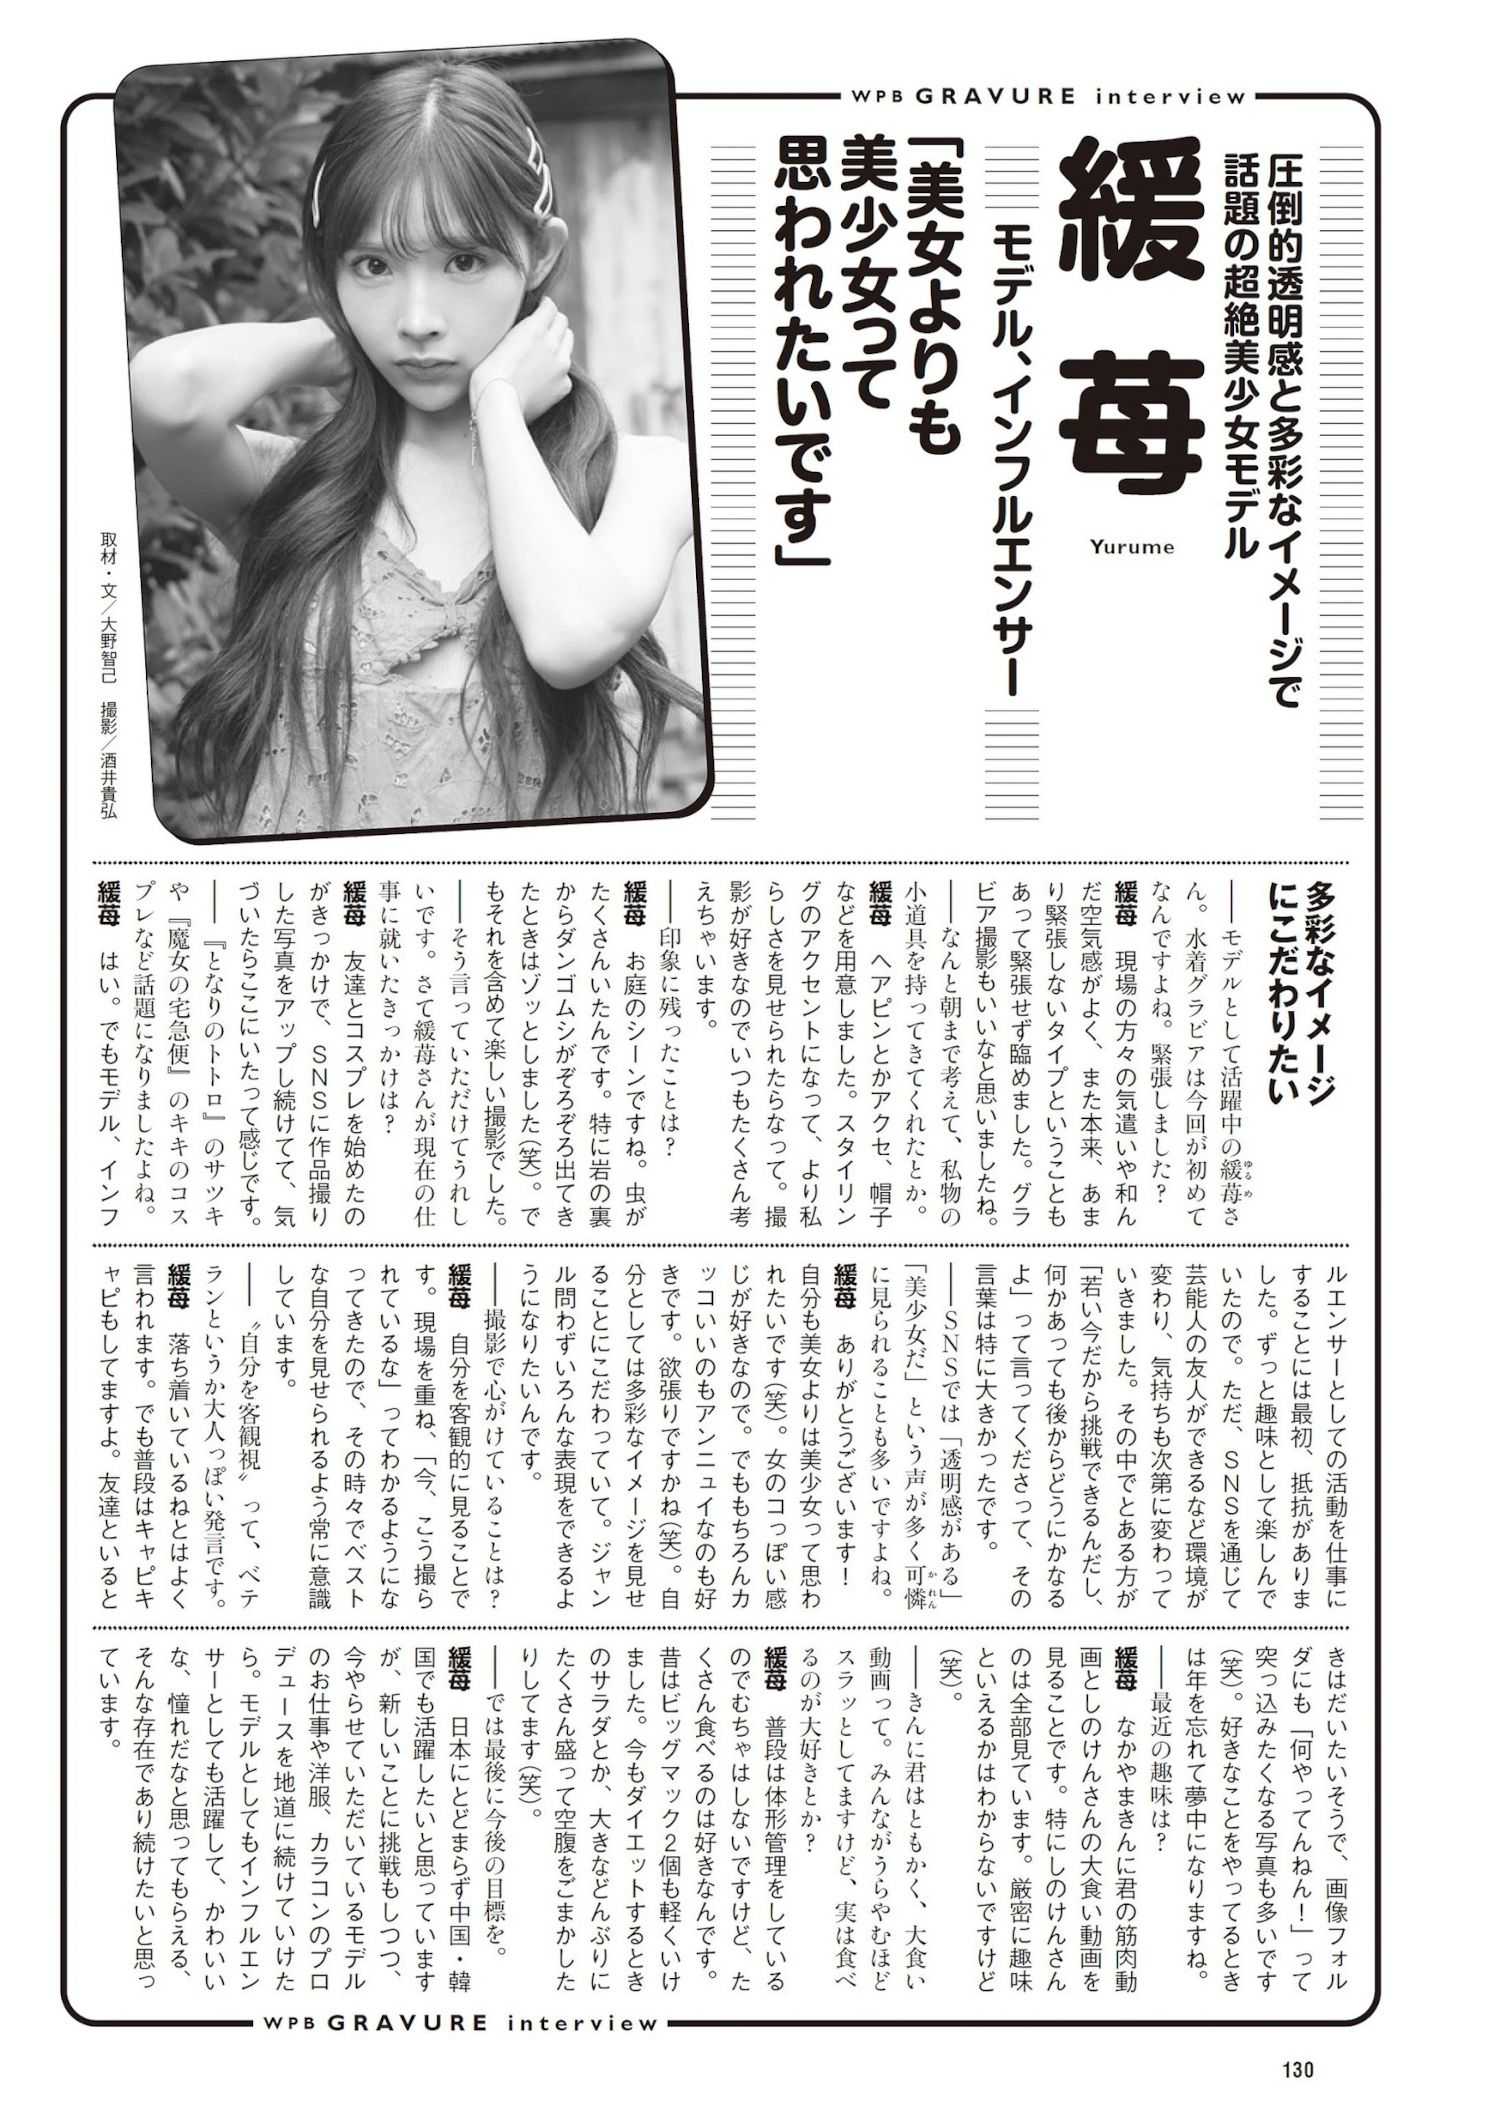 WPB GRAVURE interview
圧倒的透明感と多彩なイメージで
話題の超絶美少女モデル
緩苺
Yurume
モデル、インフルエンサー
「美女よりも
美少女って
思われたいです」
取材・文／大野智己　撮影／酒井貴弘
多彩なイメージ
にこだわりたい
──モデルとして活躍中の緩苺さ
ゆるめ
ん。水着グラビアは今回が初めて
なんですよね。緊張しました？
緩苺　現場の方々の気遣いや和ん
だ空気感がよく、また本来、あま
り緊張しないタイプということも
あって緊張せず臨めました。グラ
ビア撮影もいいなと思いましたね。
──なんと朝まで考えて、私物の
小道具を持ってきてくれたとか。
緩苺　ヘアピンとかアクセ、帽子
などを用意しました。スタイリン
グのアクセントになって、より私
らしさを見せられたらなって。撮
影が好きなのでいつもたくさん考
えちゃいます。
──印象に残ったことは？
緩苺　お庭のシーンですね。虫が
たくさんいたんです。特に岩の裏
からダンゴムシがぞろぞろ出てき
たときはゾッとしました（笑）。で
もそれを含めて楽しい撮影でした。
──そう言っていただけてうれし
いです。さて緩苺さんが現在の仕
事に就いたきっかけは？
緩苺　友達とコスプレを始めたの
がきっかけで、SNSに作品撮り
した写真をアップし続けてて、気
づいたらここにいたって感じです。
──『となりのトトロ』のサツキ
や『魔女の宅急便』のキキのコス
プレなど話題になりましたよね。
緩苺　はい。でもモデル、インフ
ルエンサーとしての活動を仕事に
することには最初、抵抗がありま
した。ずっと趣味として楽しんで
いたので。ただ、SNSを通じて
芸能人の友人ができるなど環境が
変わり、気持ちも次第に変わって
いきました。その中でとある方が
「若い今だから挑戦できるんだし、
何かあっても後からどうにかなる
よ」って言ってくださって、その
言葉は特に大きかったです。
──SNSでは「透明感がある」
「美少女だ」という声が多く可憐
かれん
に見られることも多いですよね。
緩苺　ありがとうございます！
自分も美女よりは美少女って思わ
れたいです（笑）。女のコっぽい感
じが好きなので。でももちろんカ
ッコいいのもアンニュイなのも好
きです。欲張りですかね（笑）。自
分としては多彩なイメージを見せ
ることにこだわっていて。ジャン
ル問わずいろんな表現をできるよ
うになりたいんです。
──撮影で心がけていることは？
緩苺　自分を客観的に見ることで
す。現場を重ね、「今、こう撮ら
れているな」ってわかるようにな
ってきたので、その時々でベスト
な自分を見せられるよう常に意識
しています。
──〝自分を客観視〟って、ベテ
ランというか大人っぽい発言です。
緩苺　落ち着いているねとはよく
言われます。でも普段はキャピキ
ャピもしてますよ。友達といると
きはだいたいそうで、画像フォル
ダにも「何やってんねん！」って
突っ込みたくなる写真も多いです
（笑）。好きなことをやってるとき
は年を忘れて夢中になりますね。
──最近の趣味は？
緩苺　なかやまきんに君の筋肉動
画としのけんさんの大食い動画を
見ることです。特にしのけんさん
のは全部見ています。厳密に趣味
といえるかはわからないですけど
（笑）。
──きんに君はともかく、大食い
動画って。みんながうらやむほど
スラッとしてますけど、実は食べ
るのが大好きとか？
緩苺　普段は体形管理をしている
のでむちゃはしないですけど、た
くさん食べるのは好きなんです。
昔はビッグマック2個も軽くいけ
ました。今もダイエットするとき
のサラダとか、大きなどんぶりに
たくさん盛って空腹をごまかした
りしてます（笑）。
──では最後に今後の目標を。
緩苺　日本にとどまらず中国・韓
国でも活躍したいと思っています
が、新しいことに挑戦もしつつ、
今やらせていただいているモデル
のお仕事や洋服、カラコンのプロ
デュースを地道に続けていけた
ら。モデルとしてもインフルエン
サーとしても活躍して、かわいい
な、憧れだなと思ってもらえる、
そんな存在であり続けたいと思っ
ています。
WPB GRAVURE interview
130